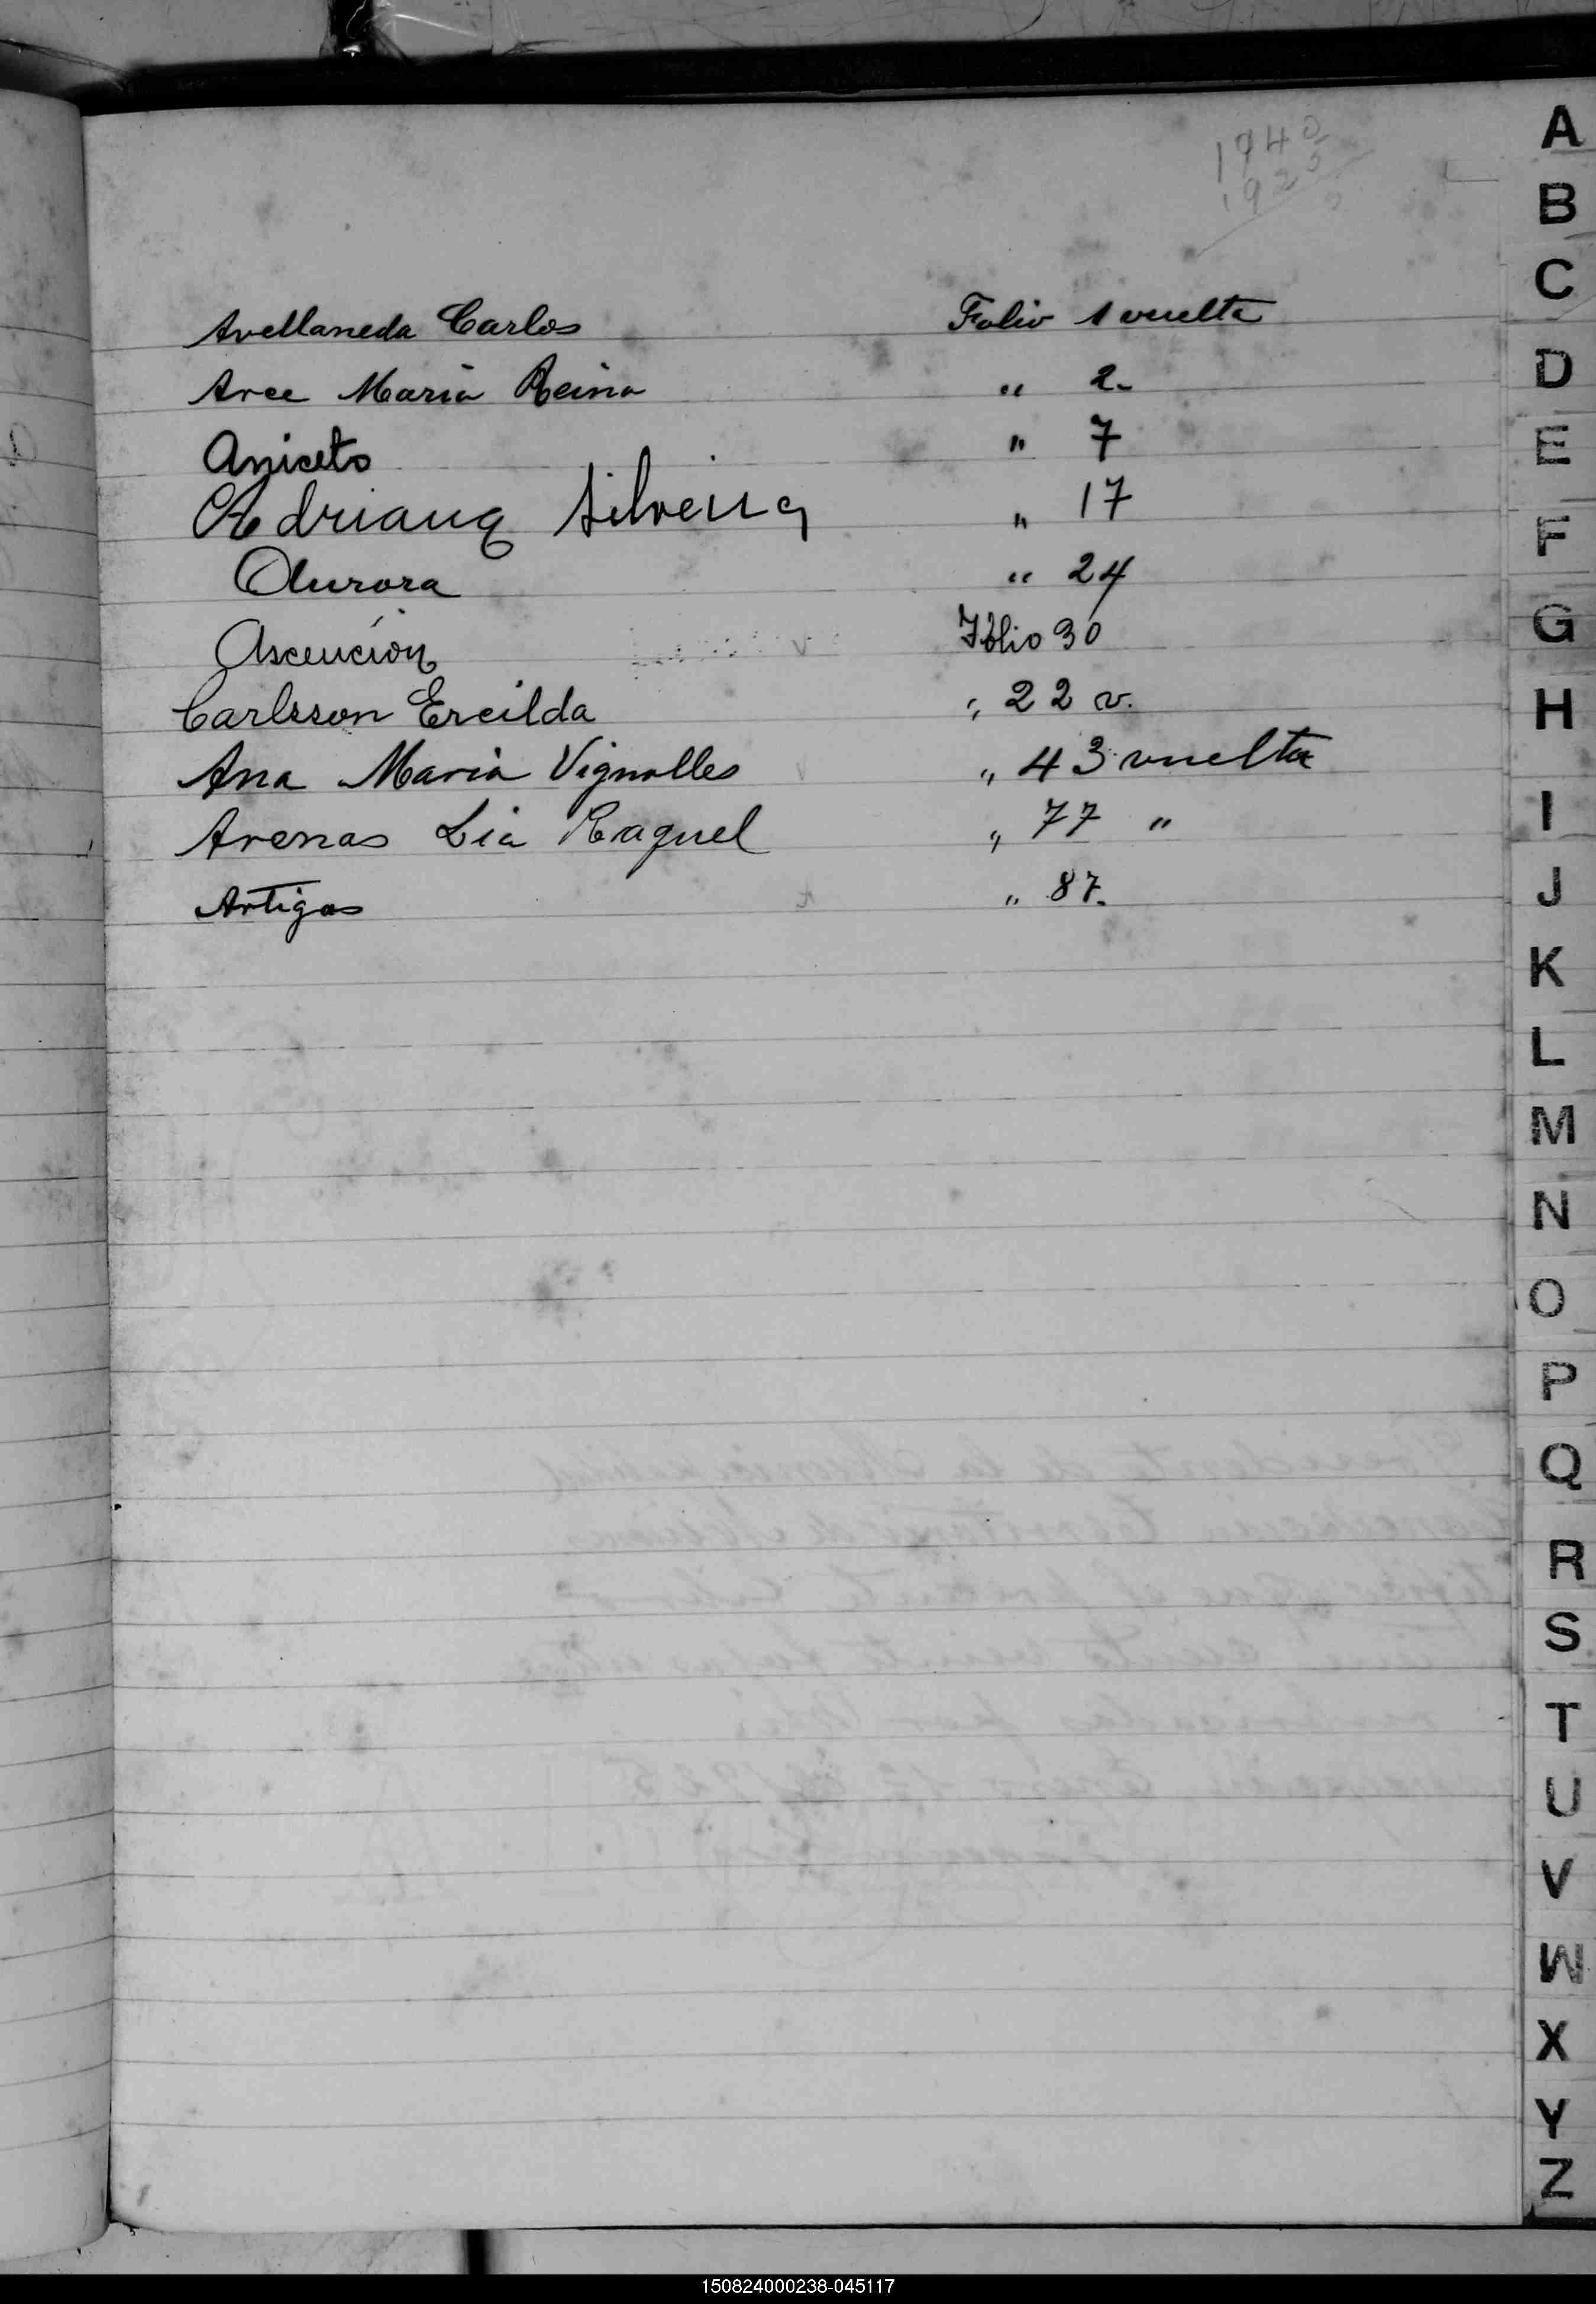 1940
1925
Avellaneda Carlos Folio 1 vuelta
Arce Maria Reina " 2.
Aniceto " 7
Adriana Silveira " 17
Aurora " 24
Ascencion Folio 30
Carlsson Ercilda " 22 v.
Ana Maria Vignolles " 43 vuelta
Arenas Lia Raquel " 77 "
Artigas " 87.
A
B
C
D
E
F
G
H
I
J
K
L
M
N
O
P
Q
R
S
T
U
V
W
X
Y
Z
150824000238-045117